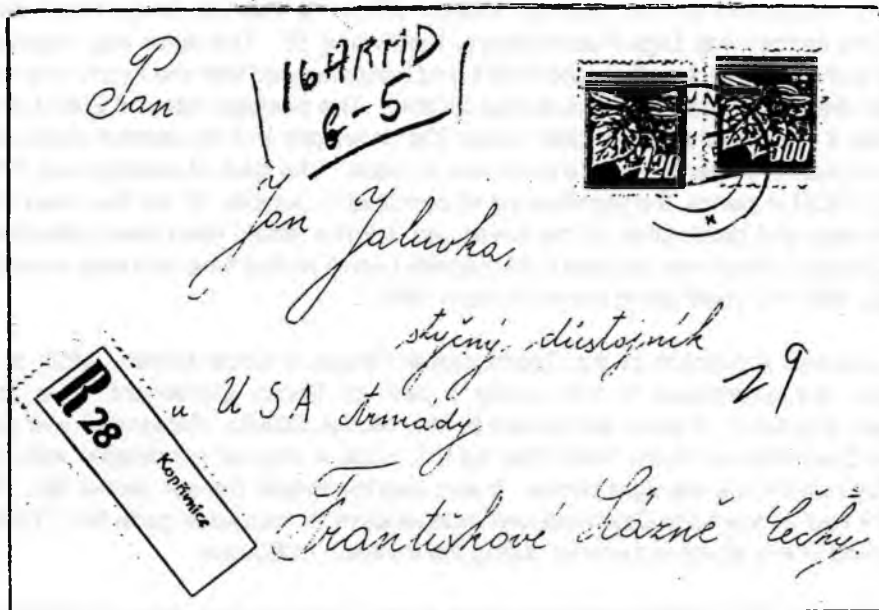 Pan
16 ARMD
6-5
120
300
Jan Jaluvka,
styčný důstojník
29
u USA Armady
R 28
Františkové Lázně Čechy